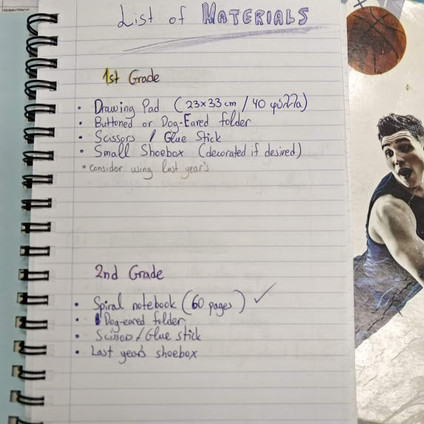 List of MATERIALS
1st Grade
• Drawing Pad (23x33cm / 40 φύλλα)
• Buttoned or Dog-Eared folder
• Scissors / Glue Stick
• Small Shoebox (decorated if desired)
* consider using last year's
2nd Grade
• Spiral notebook (60 pages) ✓
• Dog-eared folder
• Scissors / Glue stick
• Last year's shoebox